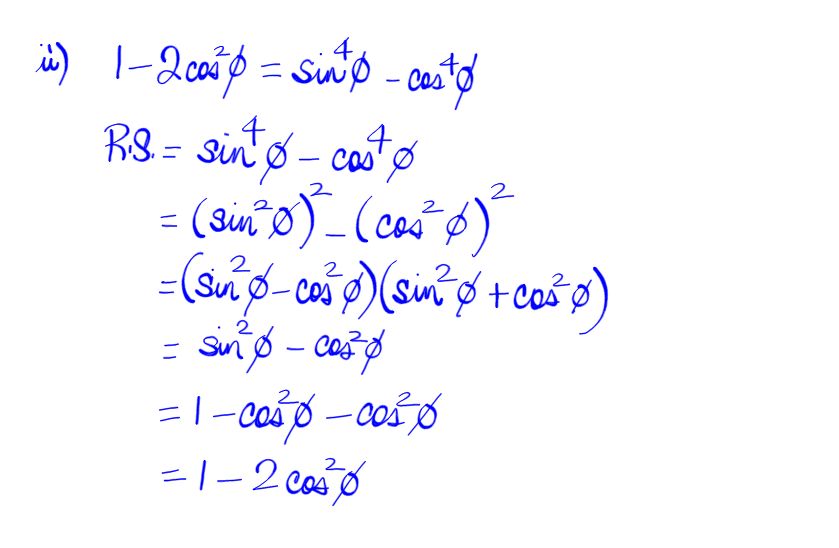 ii) 1 - 2cos²φ = sin⁴φ - cos⁴φ
R.S. = sin⁴φ - cos⁴φ
= (sin²φ)² - (cos²φ)²
= (sin²φ - cos²φ)(sin²φ + cos²φ)
= sin²φ - cos²φ
= 1 - cos²φ - cos²φ
= 1 - 2cos²φ